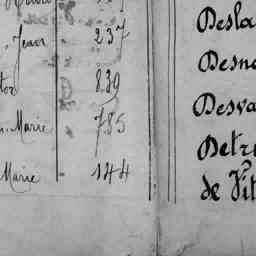 Jean 237 Desla
tor 839 Desno
n. Marie 785 Desva
Marie 144 Detr
de Vit